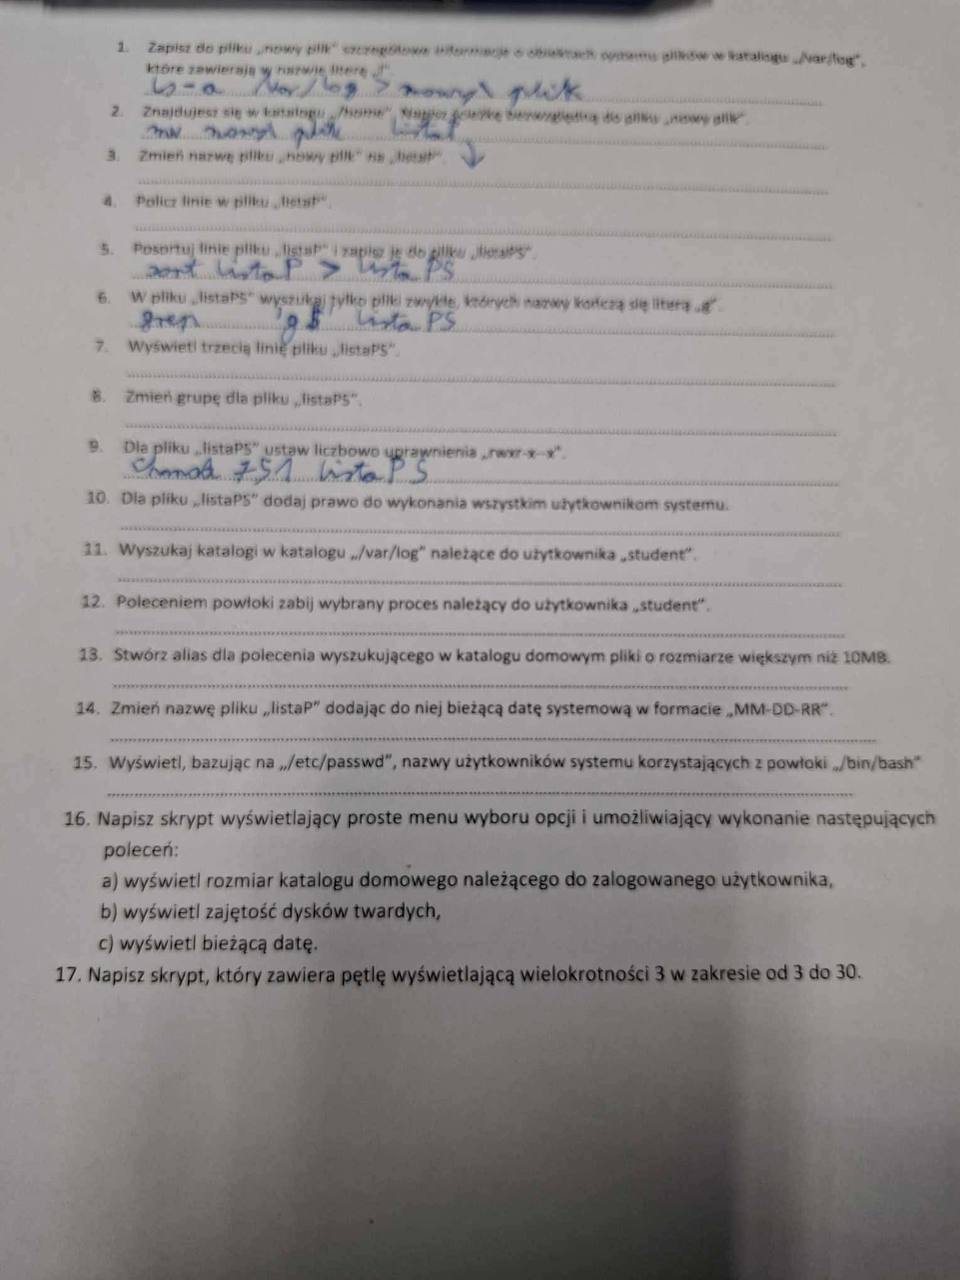 1. Zapisz do pliku „nowy plik" szczegółowe informacje o obiektach systemu plików w katalogu „/var/log",
które zawierają w nazwie literę
ls -a /var/log > nowy\ plik
2. Znajdujesz się w katalogu „/home". Napisz ścieżkę bezwzględną do pliku „nowy plik".
mv nowy\ plik listaP
3. Zmień nazwę pliku „nowy plik" na „listaP". ↓
4. Policz linie w pliku „listaP".
5. Posortuj linie pliku „listaP" i zapisz je do pliku „listaPS".
sort listaP > listaPS
6. W pliku „listaPS" wyszukaj tylko pliki zwykłe, których nazwy kończą się literą „g".
grep 'g$ listaPS
7. Wyświetl trzecią linię pliku „listaPS".
8. Zmień grupę dla pliku „listaPS".
9. Dla pliku „listaPS" ustaw liczbowo uprawnienia „rwxr-x--x".
Chmod 751 listaPS
10. Dla pliku „listaPS" dodaj prawo do wykonania wszystkim użytkownikom systemu.
11. Wyszukaj katalogi w katalogu „/var/log" należące do użytkownika „student".
12. Poleceniem powłoki zabij wybrany proces należący do użytkownika „student".
13. Stwórz alias dla polecenia wyszukującego w katalogu domowym pliki o rozmiarze większym niż 10MB.
14. Zmień nazwę pliku „listaP" dodając do niej bieżącą datę systemową w formacie „MM-DD-RR".
15. Wyświetl, bazując na „/etc/passwd", nazwy użytkowników systemu korzystających z powłoki „/bin/bash"
16. Napisz skrypt wyświetlający proste menu wyboru opcji i umożliwiający wykonanie następujących
poleceń:
a) wyświetl rozmiar katalogu domowego należącego do zalogowanego użytkownika,
b) wyświetl zajętość dysków twardych,
c) wyświetl bieżącą datę.
17. Napisz skrypt, który zawiera pętlę wyświetlającą wielokrotności 3 w zakresie od 3 do 30.